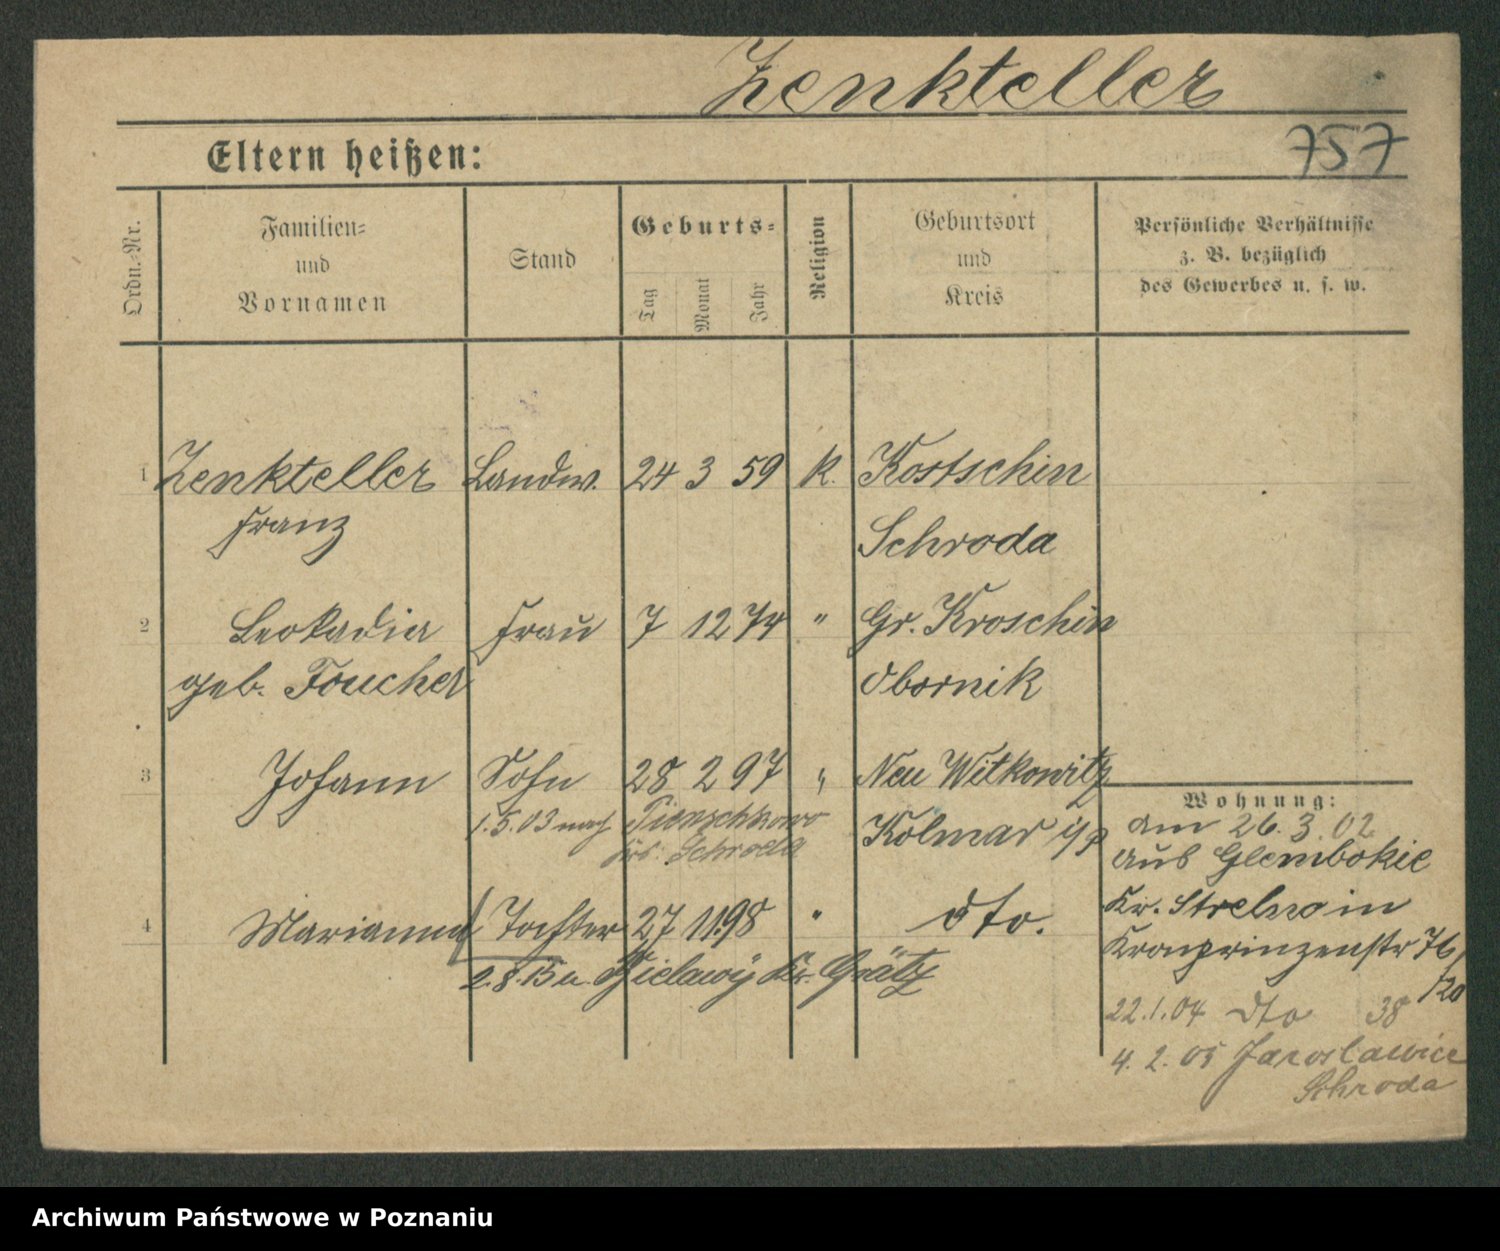 Zenkteller
757
Eltern heißen:
Ordn.-Nr.
Familien-
und
Vornamen
Stand
Geburts-
Tag
Monat
Jahr
Religion
Geburtsort
und
Kreis
Persönliche Verhältnisse
z. B. bezüglich
des Gewerbes u. s. w.
1 Zenkteller Landw. 24 3 59 K. Kostschin
Franz Schroda
2 Leokadia Frau 7 12 74 " Gr. Kroschin
geb. Foucher Obornik
3 Johann Sohn 28 2 97 " Neu Witkowitz
1.5.03 nach Pienschkowo Kolmar i/P
Schroda
4 Marianna Tochter 27 11 98 " dto.
2.8.15 n. Bielawy Kr. Grätz
Wohnung:
am 26.3.02
aus Glembokie
Kr. Strelno in
Kronprinzenstr 76/
120
22.1.04 dto 38
4.2.05 Jaroslawice
Schroda
Archiwum Państwowe w Poznaniu